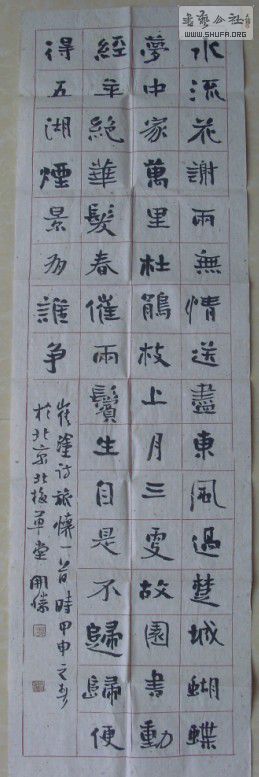 水流花謝兩無情送盡東風過楚城蝴蝶
夢中家萬里杜鵑枝上月三更故園書動
經年絕華髮春催兩鬢生自是不歸歸便
得五湖煙景有誰争
崔塗詩旅懷一首時甲申之
於北京北草堂
書藝公社
WWW.SHUFA.ORG